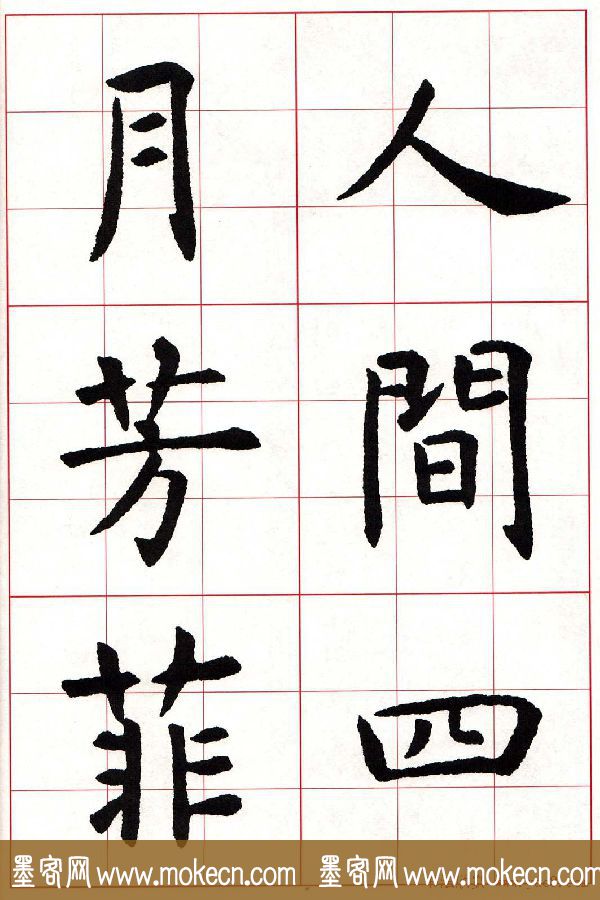 人間四
月芳菲
墨客网 www.mokecn.com 墨客网 www.mokecn.com